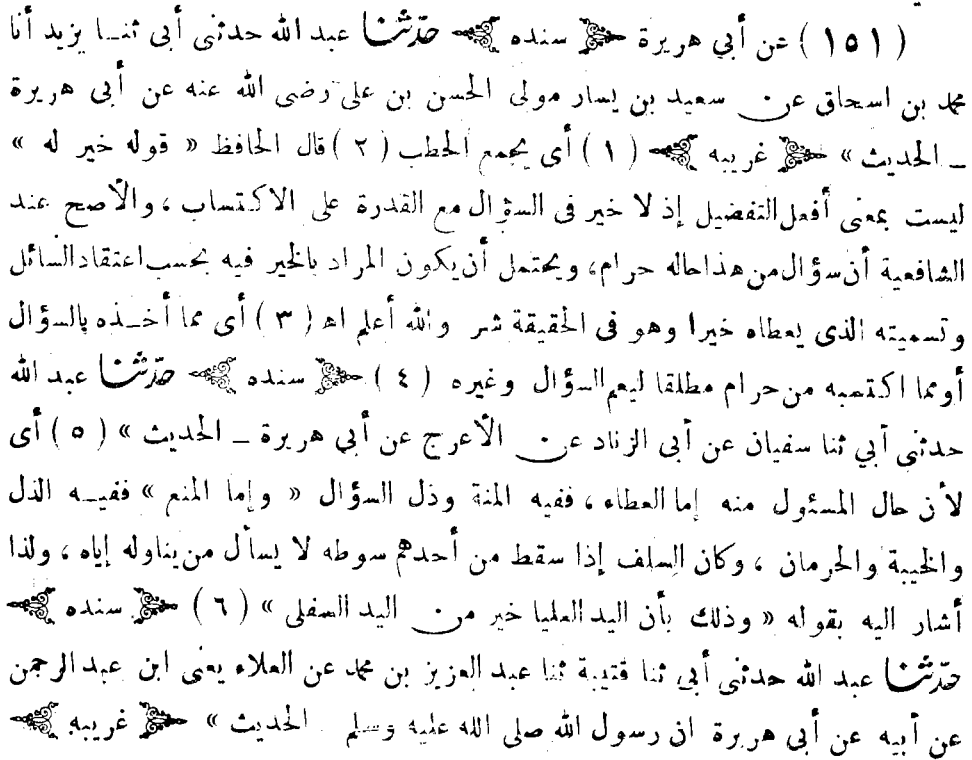 ( ١٥١ ) عن أبي هريرة ﴿ سنده ﴾ حدّثنا عبد الله حدثنى أبى ثنا يزيد أنا
محمد بن اسحاق عن سعيد بن يسار مولى الحسن بن على رضى الله عنه عن أبى هريرة
ــ الحديث » ﴿ غريبه ﴾ ( ١ ) أى يجمع الحطب ( ٢ ) قال الحافظ « قوله خير له »
ليست بمعنى أفعل التفضيل إذ لا خير فى السؤال مع القدرة على الاكتساب ، والأصح عند
الشافعية أن سؤال من هذا حاله حرام ، ويحتمل أن يكون المراد بالخير فيه بحسب اعتقاد السائل
وتسميته الذى يعطاه خيرا وهو فى الحقيقة شر والله أعلم اهـ ( ٣ ) أى مما أخذه بالسؤال
أو مما اكتسبه من حرام مطلقا ليعم السؤال وغيره ( ٤ ) ﴿ سنده ﴾ حدّثنا عبد الله
حدثنى أبي ثنا سفيان عن أبى الزناد عن الأعرج عن أبي هريرة ــ الحديث » ( ٥ ) أى
لأن حال المسئول منه إما العطاء ، ففيه المنة وذل السؤال « وإما المنع » ففيه الذل
والخيبة والحرمان ، وكان السلف إذا سقط من أحدهم سوطه لا يسأل من يناوله إياه ، ولذا
أشار اليه بقوله « وذلك بأن اليد العليا خير من اليد السفلى » ( ٦ ) ﴿ سنده ﴾
حدّثنا عبد الله حدثنى أبي ثنا قتيبة ثنا عبد العزيز بن محمد عن العلاء يعنى ابن عبد الرحمن
عن أبيه عن أبى هريرة ان رسول الله صلى الله عليه وسلم الحديث » ﴿ غريبه ﴾